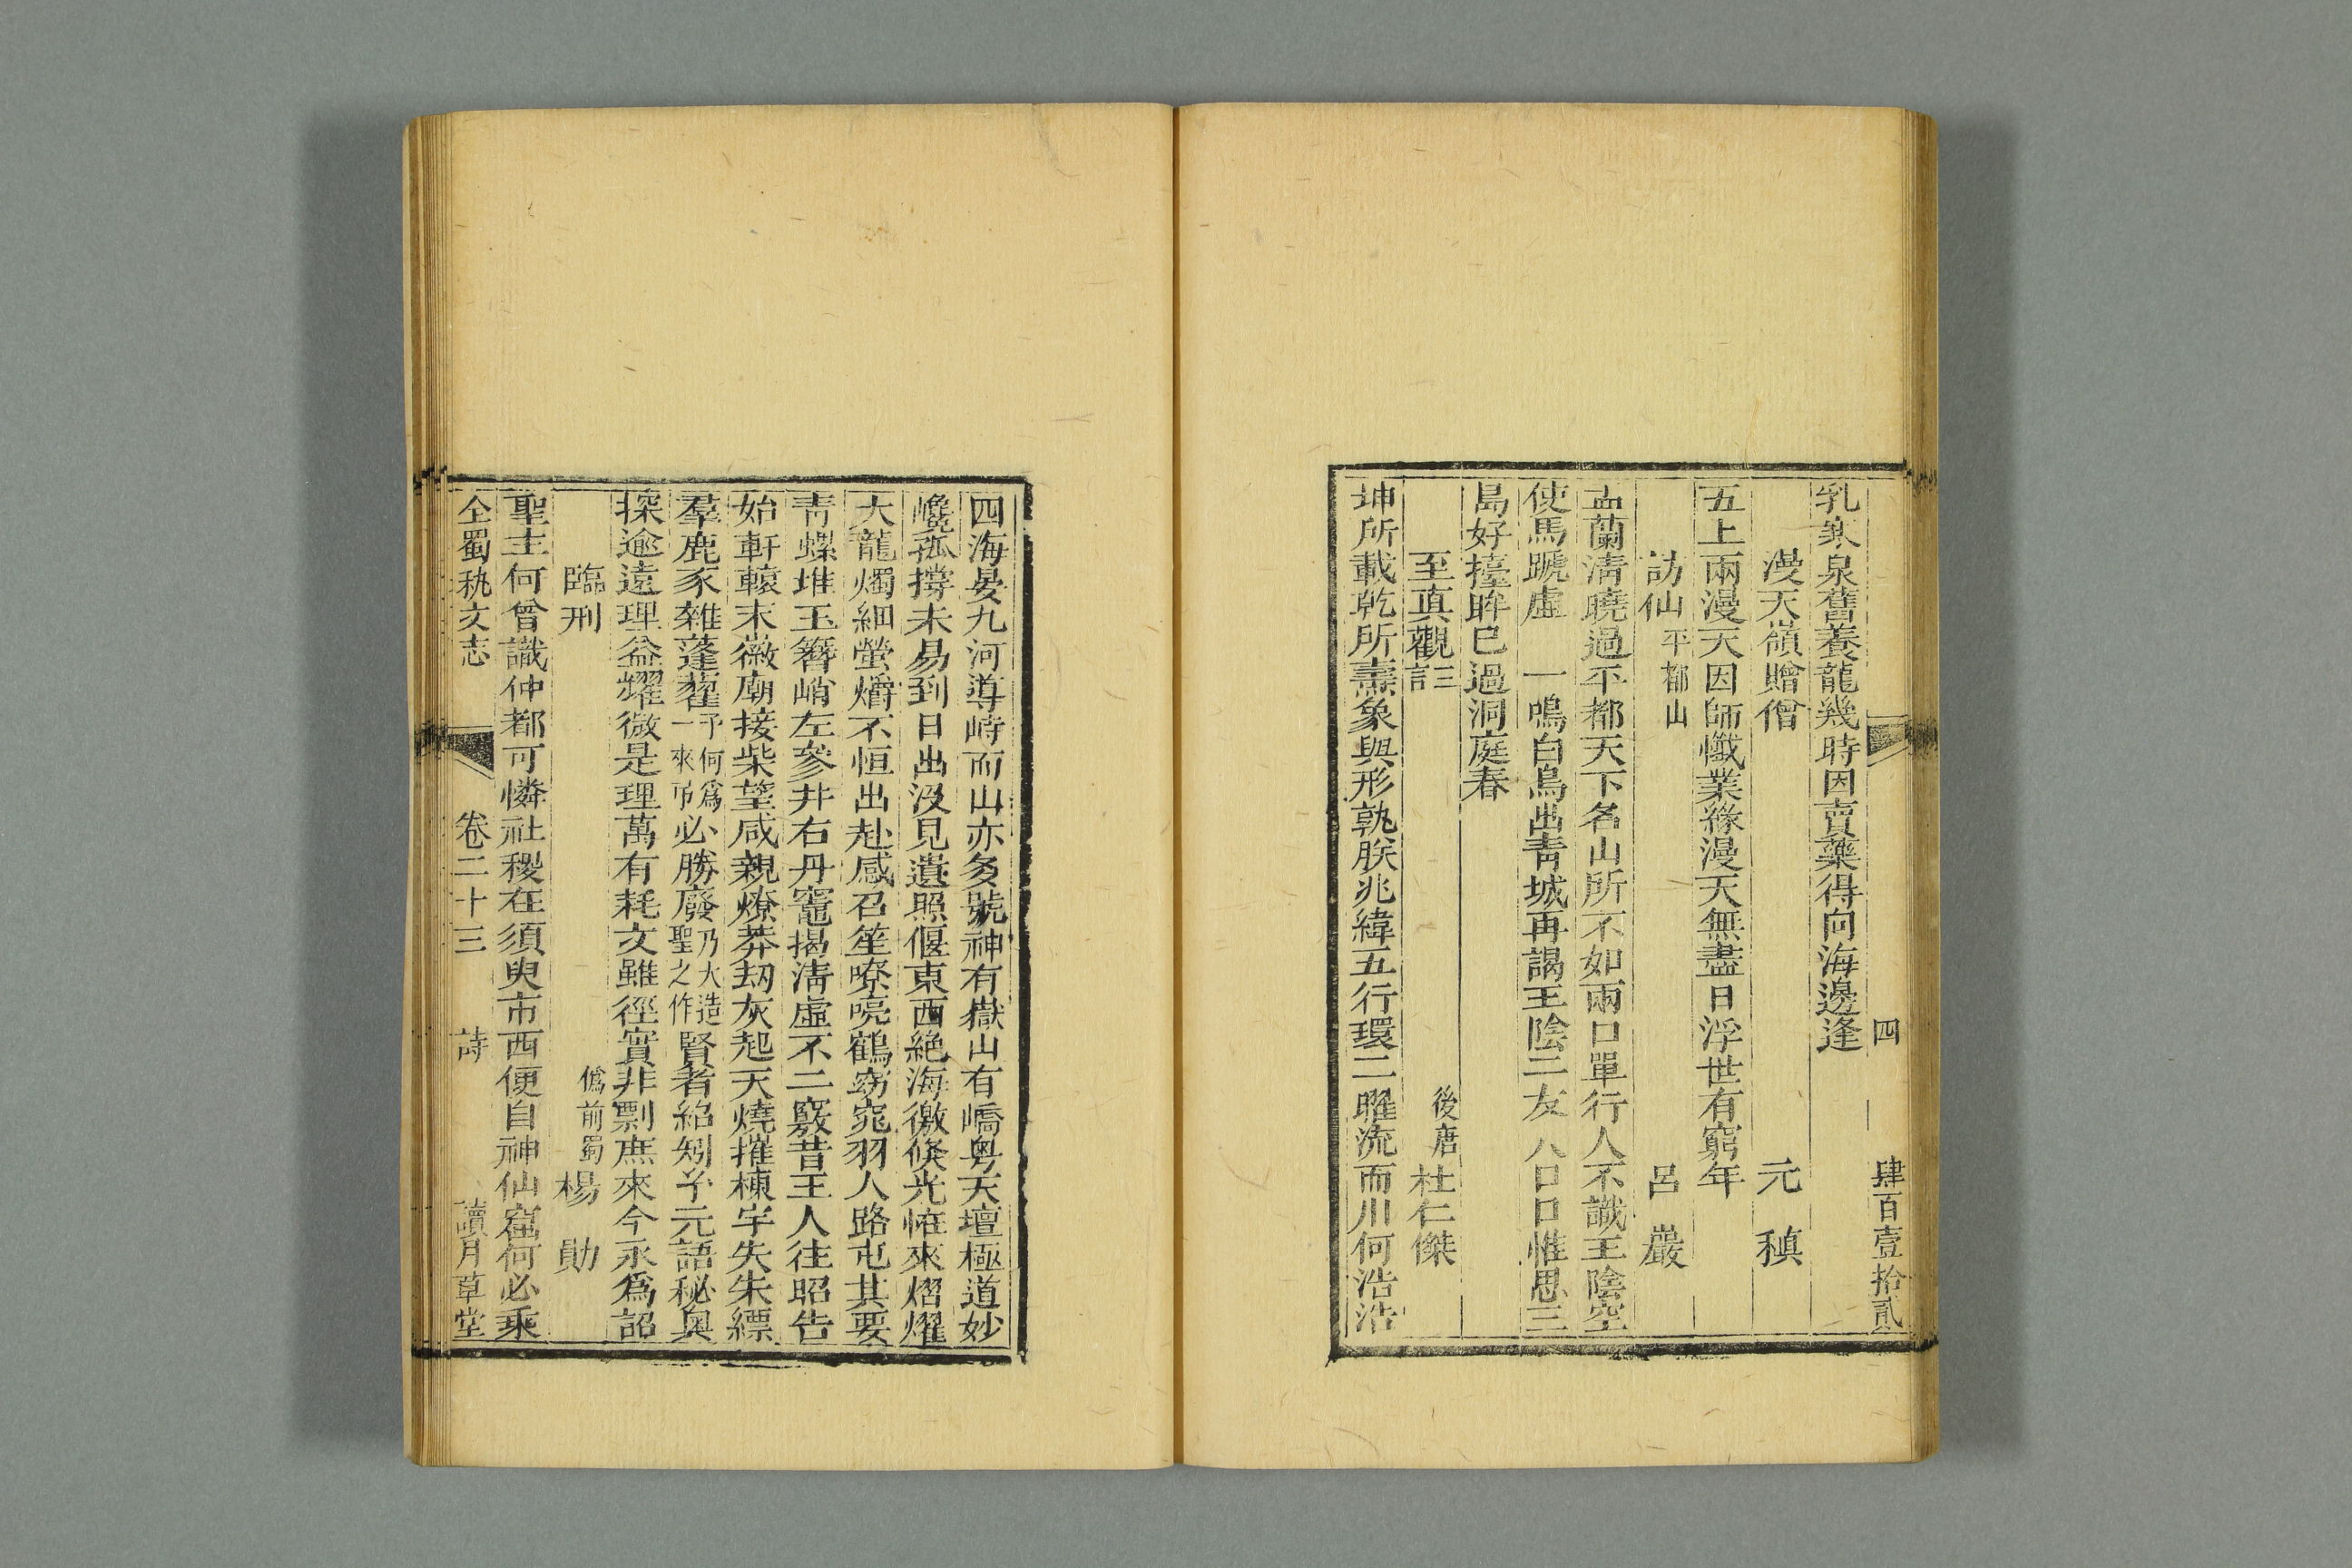 四 肆百壹拾貳
乳寒泉舊養龍幾時因賣藥得向海邊逢
漫天嶺贈僧 元稹
五上兩漫天因師懺業緣漫天無盡日浮世有窮年
訪仙平都山 呂巖
盂蘭清曉過平都天下名山所不如兩口單行人不識王陰空
使馬蹏虛 一鳴白鳥出青城再謁王陰二友八口口惟思三
島好擡眸已過洞庭春
至真觀記 後唐杜仁傑
坤所載乾所燾象與形孰朕兆緯五行環二曜流而川何浩浩
四海晏九河導峙而山亦多號神有嶽山有嶠粵天壇極道妙
巉孤撐未易到日出沒見遺照偃東西絕海徼倏光怪來熠燿
大龍燭細螢爝不恒出赴感召笙嘹喨鶴窈窕羽人路屯其要
青螺堆玉簪峭左參井右丹竈揭清虛不二竅昔王人往昭告
始軒轅末徽廟接柴望咸親燎莽劫灰起天燒摧棟宇失朱縹
羣鹿豕雜蓬藋予何爲一來弔必勝廢乃大造聖之作賢者紹矧兮元語秘奧
探逾遠理益燿微是理萬有耗文雖徑實非剽庶來今永爲詔
臨刑 僞前蜀楊勛
聖主何曾識仲都可憐社稷在須臾市西便自神仙窟何必乘
全蜀秇文志 卷二十三 詩 讀月草堂